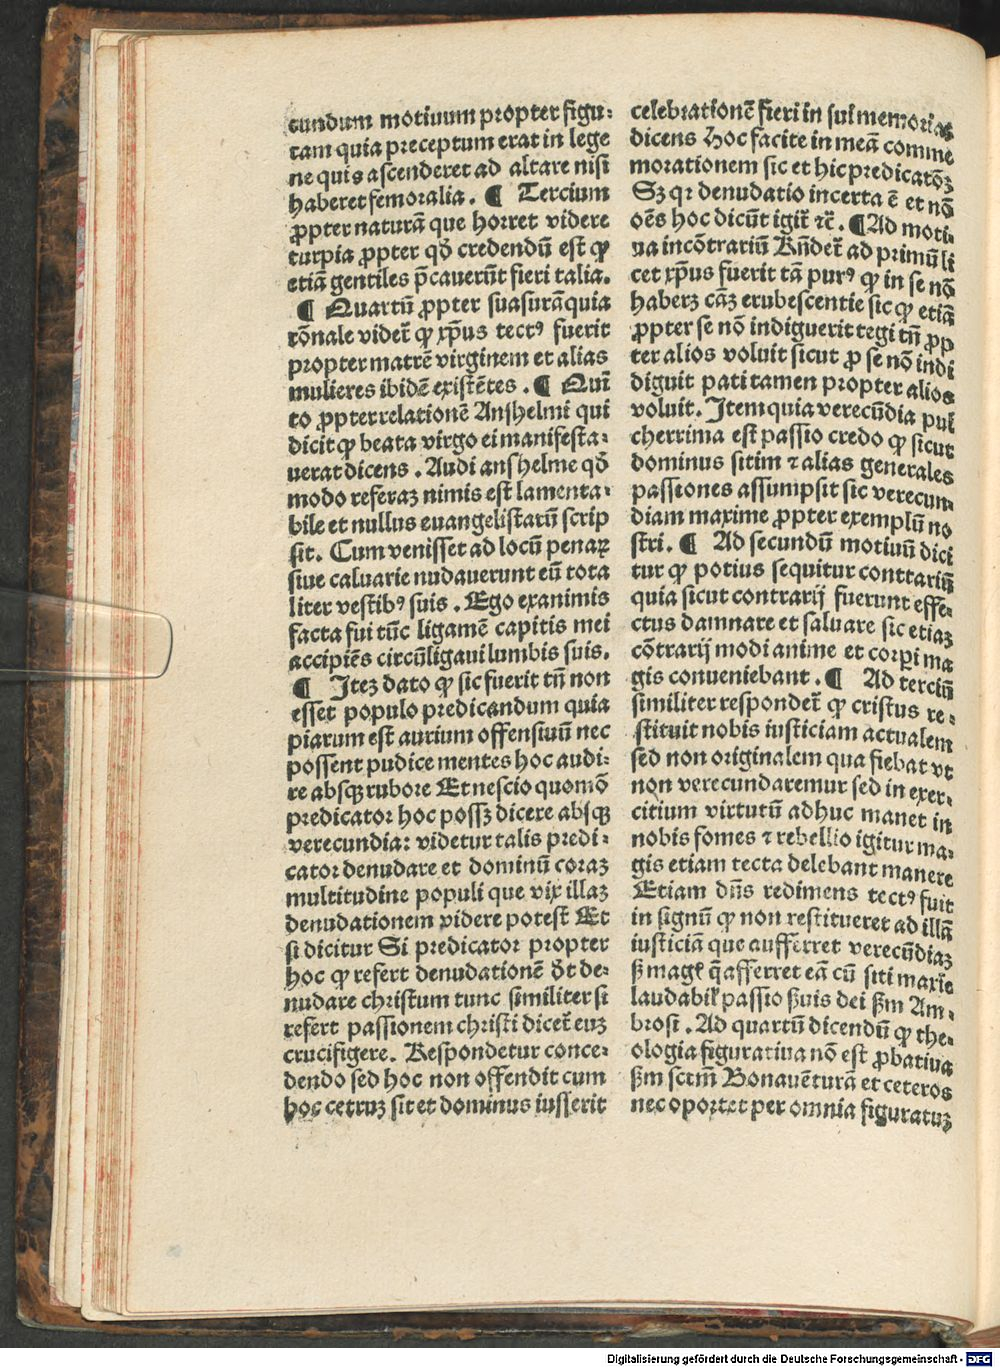 cundum motiuum propter figu⸗
ram quia preceptum erat in lege
ne quis ascenderet ad altare nisi
haberet femoralia. ¶ Tercium
ꝓpter naturã que horret videre
turpia ꝓpter qđ credendũ est ꝙ
etiã gentiles p̄cauerũt fieri talia.
¶ Quartũ ꝓpter suasurã quia
rõnale videt̃ ꝙ xp̃us tectꝰ fuerit
propter matrẽ virginem et alias
mulieres ibidẽ existẽtes. ¶ Quĩ
to ꝓpter relationẽ Anshelmi qui
dicit ꝙ beata virgo ei manifesta⸗
uerat dicens. Audi anshelme qđ
modo referaʒ nimis est lamenta⸗
bile et nullus euangelistarũ scrip
sit. Cum venisset ad locũ penaꝝ
siue caluarie nudauerunt eũ tota
liter vestibꝰ suis. Ego exanimis
facta fui tũc ligamẽ capitis mei
accipiẽs circũligaui lumbis suis.
¶ Iteʒ dato ꝙ sic fuerit tñ non
esset populo predicandum quia
piarum est aurium offensiuũ nec
possent pudice mentes hoc audi⸗
re absqʒ rubore Et nescio quomõ
predicator hoc possʒ dicere absqʒ
verecundia: videtur talis predi⸗
cator denudare et dominũ coraʒ
multitudine populi que vix illaʒ
denudationem videre potest Et
si dicitur Si predicator propter
hoc ꝙ refert denudationẽ đt de⸗
nudare christum tunc similiter si
refert passionem christi dicet̃ euʒ
crucifigere. Respondetur conce⸗
dendo sed hoc non offendit cum
hoc cetruʒ sit et dominus iusserit
celebrationẽ fieri in sui memoriaʒ
dicens Hoc facite in meã comme
morationem sic et hic predicatõʒ
Sʒ qr denudatio incerta ẽ et nõ
oẽs hoc dicũt igit̃ ⁊c̃. ¶ Ad moti⸗
ua in cõtrariũ Rñdet̃ ad primũ li
cet xp̃us fuerit tã purꝰ ꝙ in se nõ
haberʒ cãʒ erubescentie sic ꝙ etiã
ꝓpter se nõ indiguerit tegi tñ ꝓp
ter alios voluit sicut ꝓ se nõ indi
diguit pati tamen propter alios
voluit. Item quia verecũdia pul
cherrima est passio credo ꝙ sicut
dominus sitim ⁊ alias generales
passiones assumpsit sic verecun⸗
diam maxime ꝓpter exemplũ no
stri. ¶ Ad secundũ motiuũ dici
tur ꝙ potius sequitur conttariũ
quia sicut contrarij fuerunt effe⸗
ctus damnare et saluare sic etiaʒ
cõtrarij modi anime et corpi ma
gis conueniebant. ¶ Ad terciũ
similiter respondet̃ ꝙ cristus re⸗
stituit nobis iusticiam actualem
sed non originalem qua fiebat vt
non verecundaremur sed in exer⸗
citium virtutũ adhuc manet in
nobis fomes ⁊ rebellio igitur ma⸗
gis etiam tecta delebant manere
Etiam dñs redimens tectꝰ fuit
in signũ ꝙ non restitueret ad illã
iusticiã que aufferret verecũdiaʒ
ꝭ magꝭ q̃ afferret eã cũ siti maxĩe
laudabil̃ passio ẞuis dei ẞm Am⸗
brosi. Ad quartũ dicendũ ꝙ the⸗
ologia figuratiua nõ est ꝓbatiua
ẞm sctm̃ Bonauẽturã et ceteros
nec oportet per omnia figuratuʒ
Digitalisierung gefördert durch die Deutsche Forschungsgemeinschaft - DFG